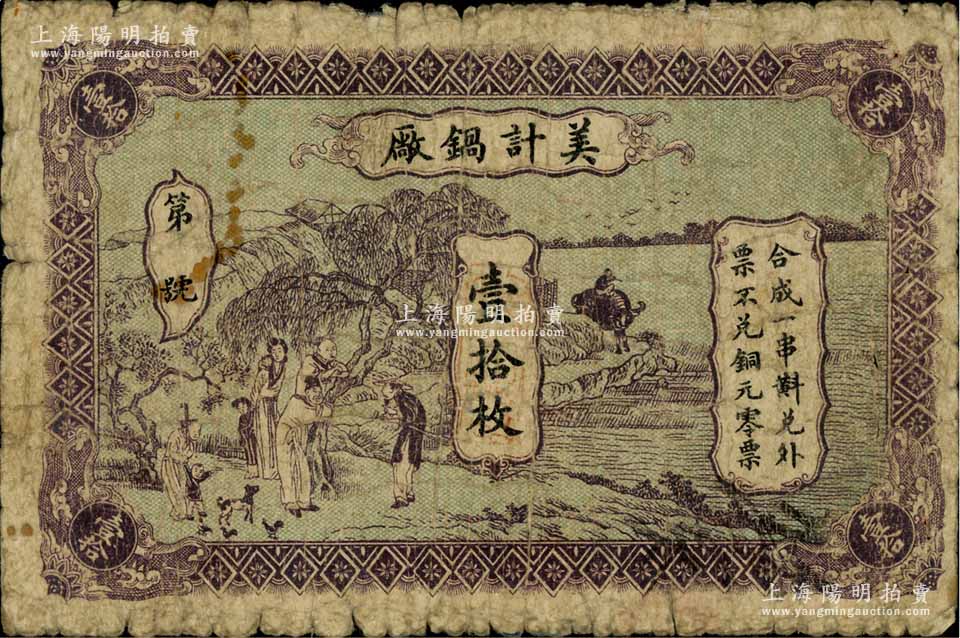 上海陽明拍賣
www.yangmingauction.com
壹拾
壹拾
美計鍋廠
第
號
合成一串斢兑外
票不兑銅元零票
壹拾枚
上海陽明拍賣
www.yangmingauction.com
壹拾
壹拾
上海陽明拍賣
www.yangmingauction.com